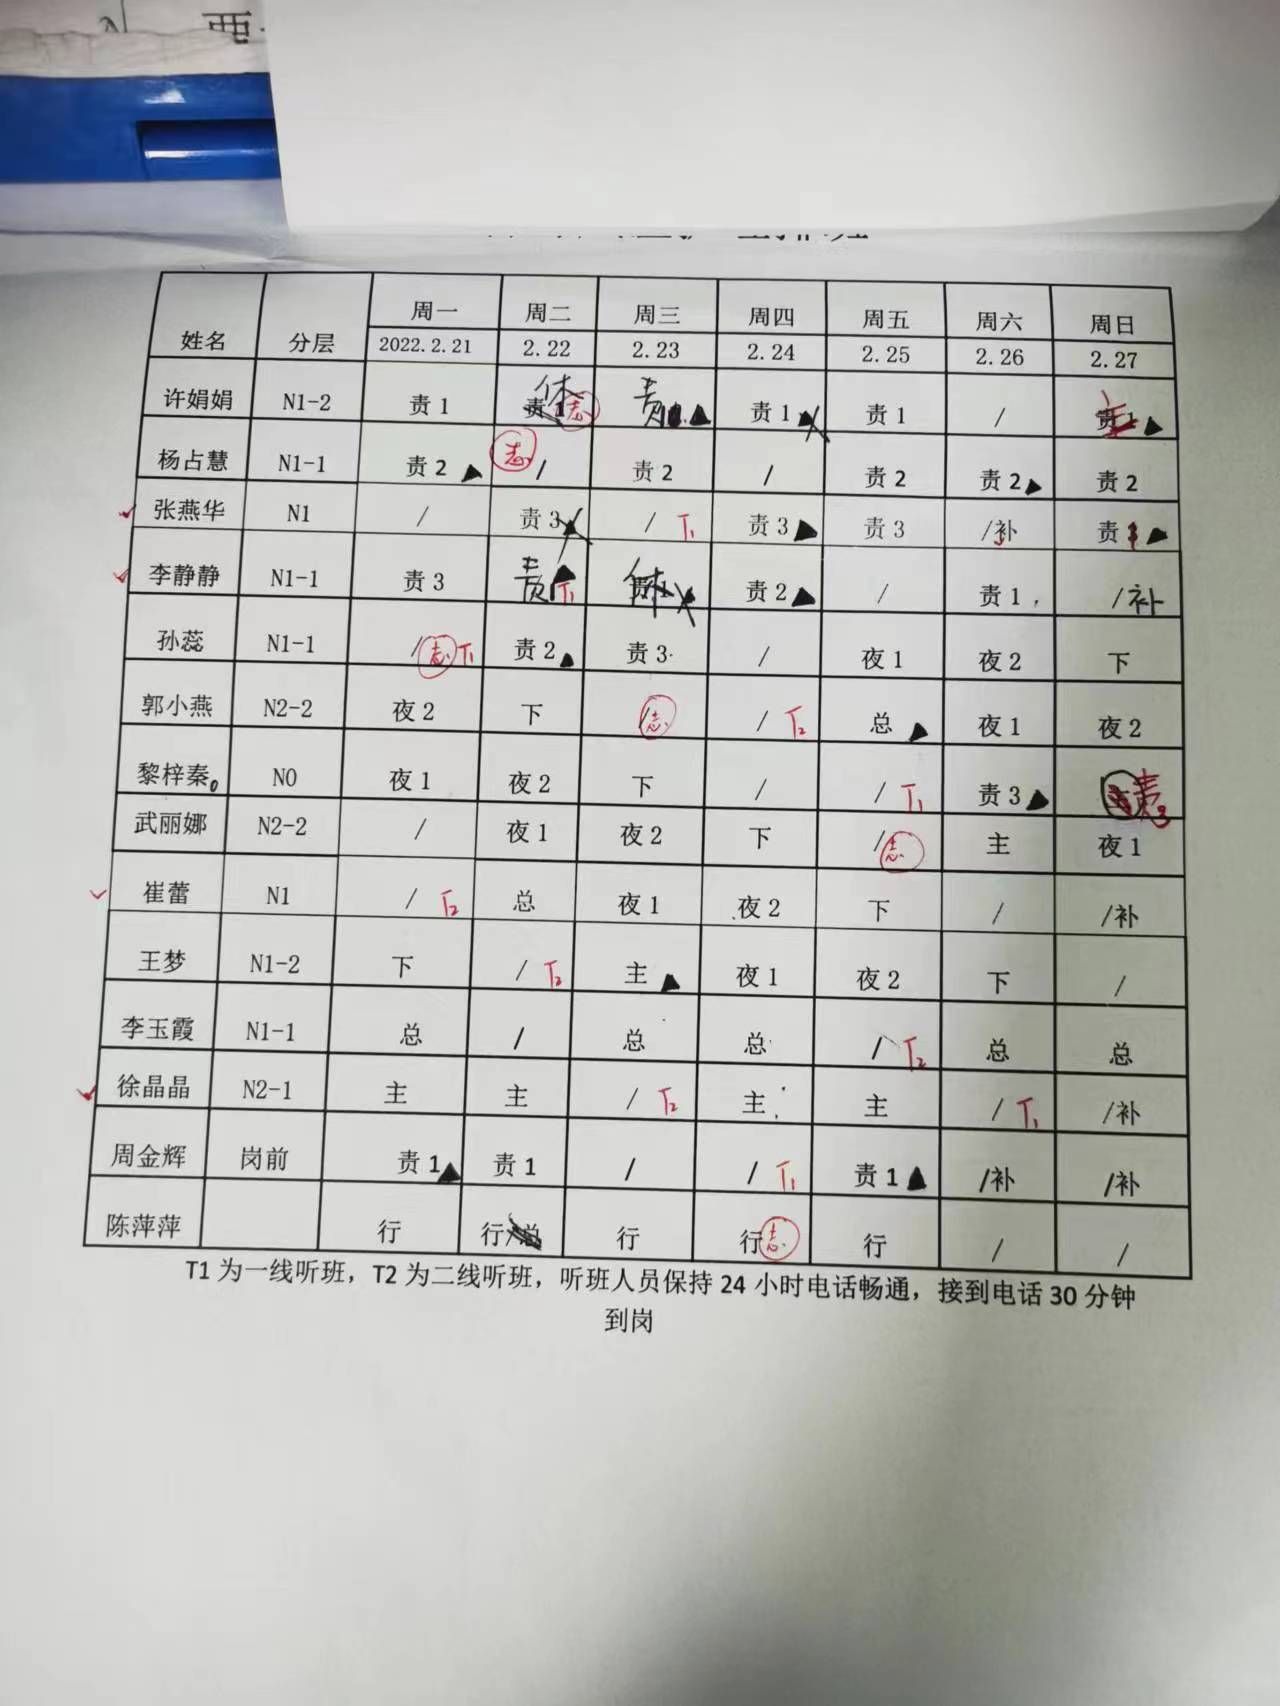 要
姓名 分层 周一 周二 周三 周四 周五 周六 周日
2022.2.21 2.22 2.23 2.24 2.25 2.26 2.27
许娟娟 N1-2 责1 休 责1 志 责 ▲ 责1 ▲ 责1 / ▲
杨占慧 N1-1 责2 ▲ 志 / 责2 / 责2 责2 ▲ 责2
张燕华 N1 / 责3 / T1 责3 ▲ 责3 /补 责 ▲
李静静 N1-1 责3 责1 ▲ T1 休 责2 ▲ / 责1 /补
孙蕊 N1-1 / 志 T1 责2 ▲ 责3 / 夜1 夜2 下
郭小燕 N2-2 夜2 下 / 志 / T2 总 ▲ 夜1 夜2
黎梓秦 N0 夜1 夜2 下 / / T1 责3 ▲ 责3
武丽娜 N2-2 / 夜1 夜2 下 / 志 主 夜1
崔蕾 N1 / T2 总 夜1 夜2 下 / /补
王梦 N1-2 下 / T2 主 ▲ 夜1 夜2 下 /
李玉霞 N1-1 总 / 总 总 / T2 总 总
徐晶晶 N2-1 主 主 / T2 主 主 / T1 /补
周金辉 岗前 责1 ▲ 责1 / / T1 责1 ▲ /补 /补
陈萍萍 行 行/总 行 行 志 行 / /
T1为一线听班，T2为二线听班，听班人员保持24小时电话畅通，接到电话30分钟
到岗